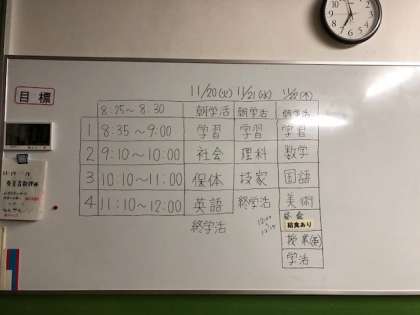 目標
11/20(火) 11/21(水) 11/22(木)
8:25～8:30 朝学活 朝学活 朝学活
1 8:35～9:00 学習 学習 学習
2 9:10～10:00 社会 理科 数学
3 10:10～11:00 保体 技家 国語
4 11:10～12:00 英語 終学活 美術
終学活
給食あり
学活